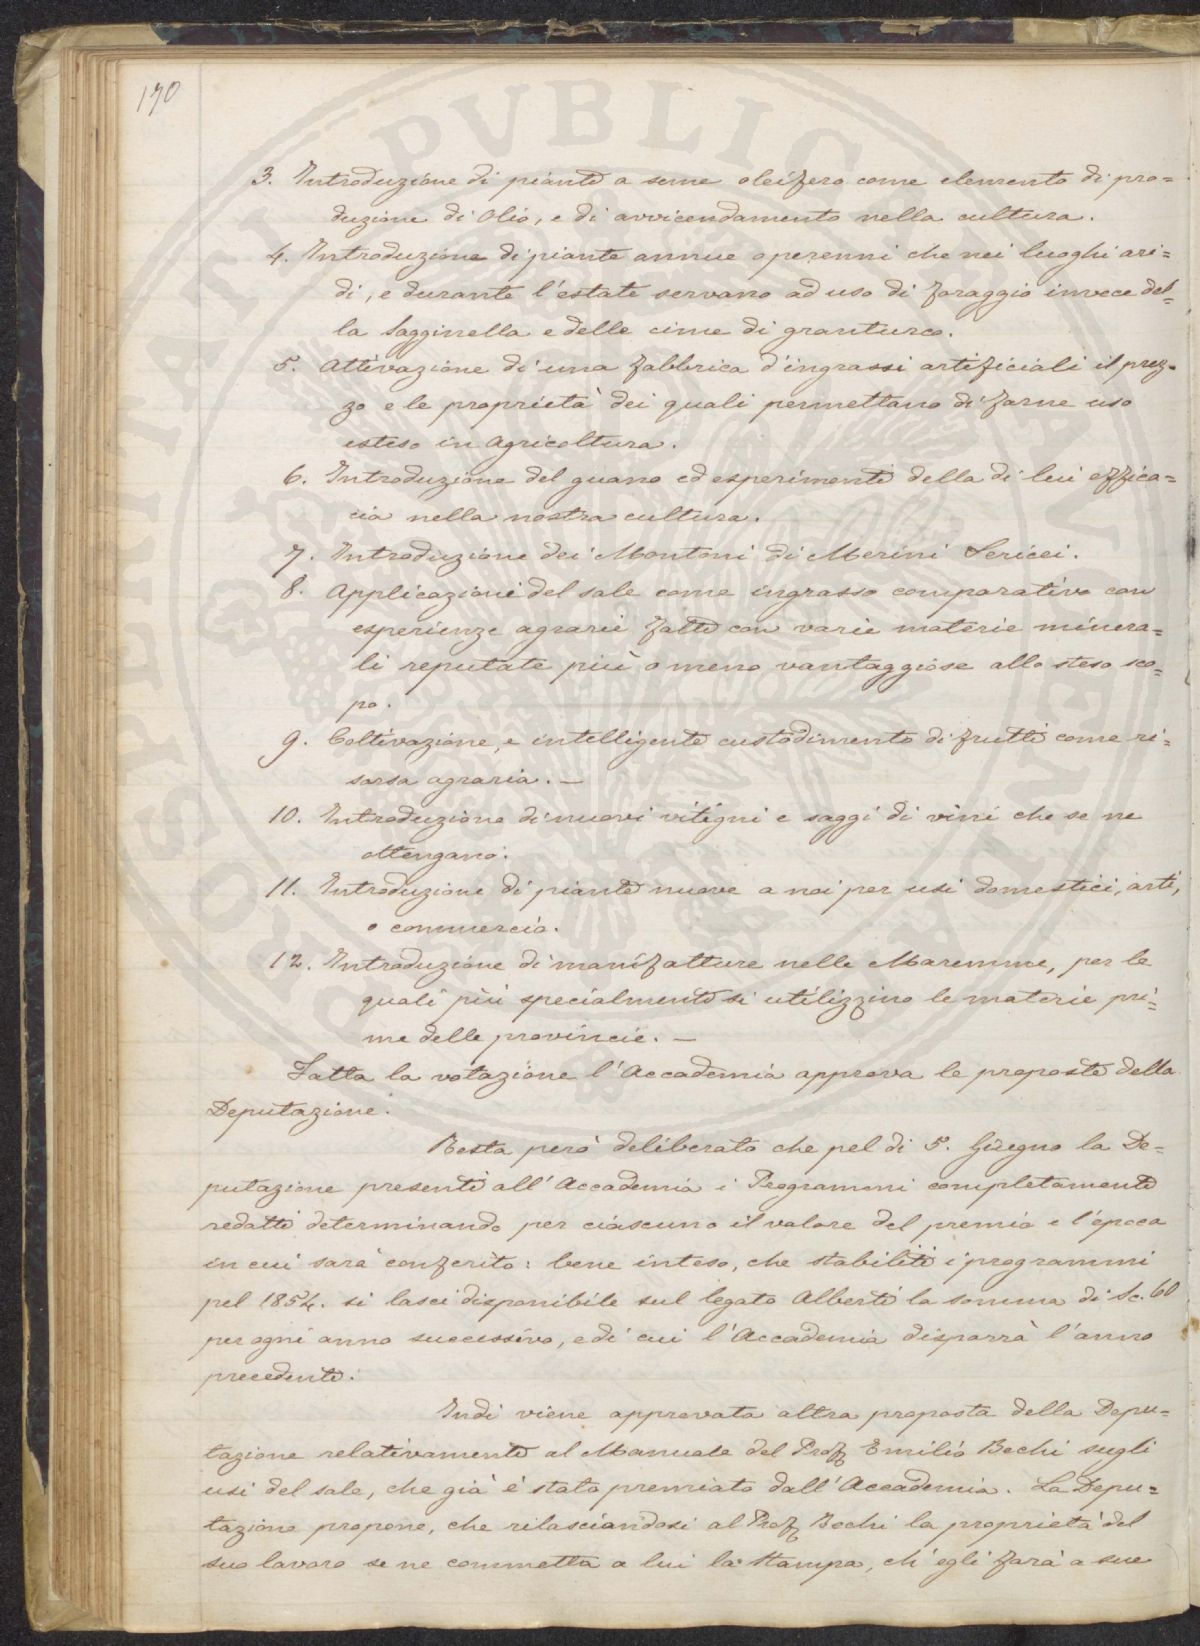 170
3. Introduzione di piante a seme oleifero come elemento di pro=
duzione di Olio, e di avvicendamento nella cultura.
4. Introduzione di piante annue o perenni che nei luoghi ari=
di, e durante l'estate servano ad uso di foraggio invece del=
la Sagginella e delle cime di granturco.
5. Attivazione di una fabbrica d'ingrassi artificiali il prez=
zo e le proprietà dei quali permettano di farne uso
esteso in Agricoltura.
6. Introduzione del guano ed esperimenti della di lui effica=
cia nella nostra cultura.
7. Introduzione dei Montoni di Merini Sericei.
8. Applicazioni del sale come ingrasso comparativo con
esperienze agrarie fatte con varie materie minera=
li reputate più o meno vantaggiose allo steso sco=
po.
9. Coltivazione, e intelligente custodimento di frutti come ri=
sorsa agraria. —
10. Introduzione di nuovi vitigni e saggi di vini che se ne
ottengano.
11. Introduzione di piante nuove a noi per usi domestici, arti,
o commercio.
12. Introduzione di manifatture nelle Maremme, per le
quali più specialmente si utilizzino le materie pri=
me delle provincie. —
Fatta la votazione l'Accademia approva le proposte della
Deputazione.
Resta però deliberato che pel dì 5. Giugno la De=
putazione presenti all'Accademia i Programmi completamente
redatti determinando per ciascuno il valore del premio e l'epoca
in cui sarà conferito: bene inteso, che stabiliti i programmi
pel 1854. si lasci disponibile sul legato Alberti la somma di Sc. 60
per ogni anno successivo, e di cui l'Accademia disporrà l'anno
precedente.
Indi viene approvata altra proposta della Depu=
tazione relativamente al Manuale del Prof. Emilio Bechi sugli
usi del sale, che già è stato premiato dall'Accademia. La Depu=
tazione propone, che rilasciandosi al Prof. Bechi la proprietà del
suo lavoro se ne commetta a lui la stampa, ch'egli farà a sue
PVBLICAE
PROSPERITATI
AVGENDAE